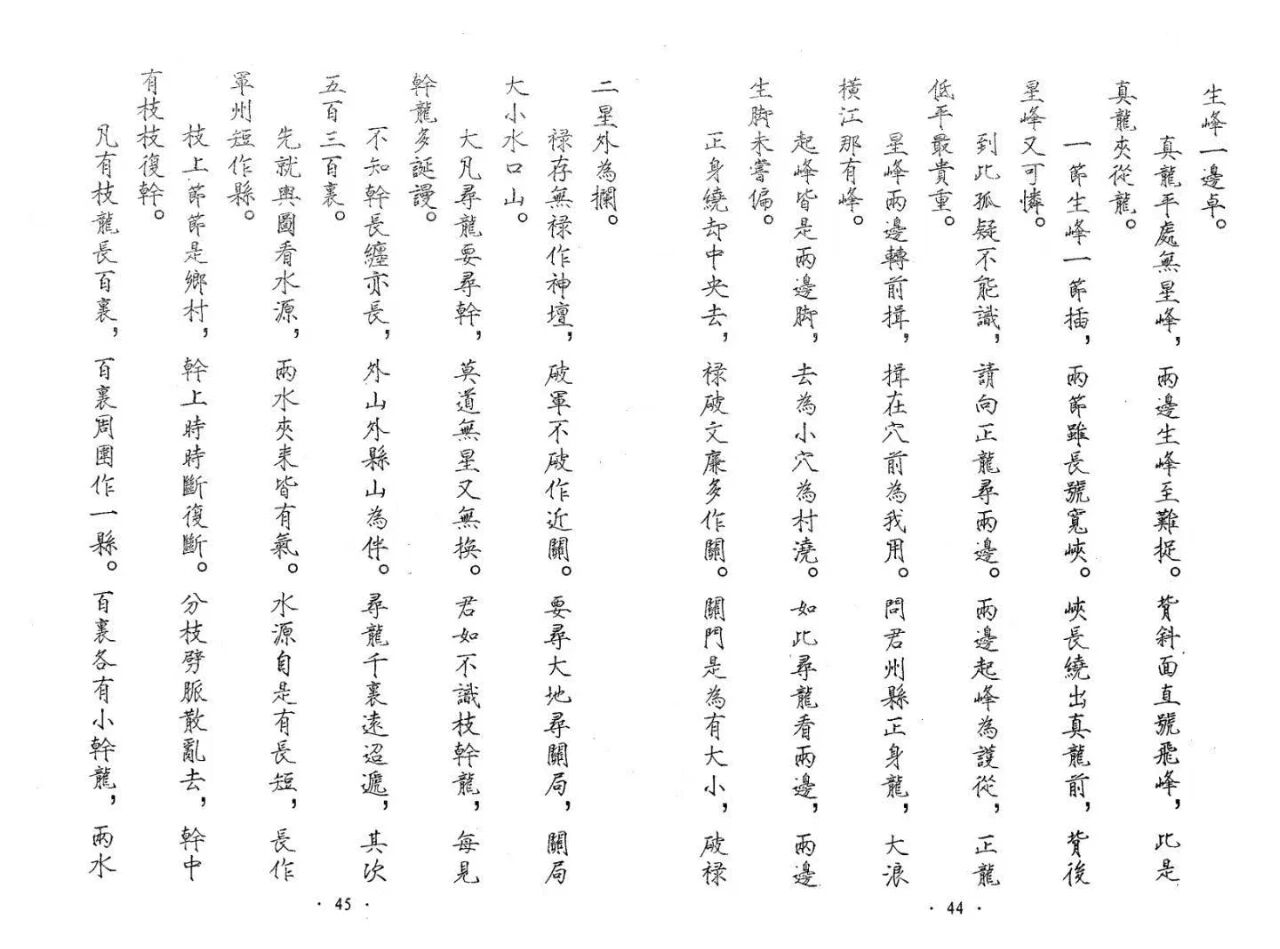 生峰一邊卓。
真龍平處無星峰，兩邊生峰至難捉。背斜面直號飛峰，此是
真龍夾從龍。
一節生峰一節插，兩節雖長號寬峽。峽長繞出真龍前，背後
星峰又可憐。
到此孤疑不能識，請向正龍尋兩邊。兩邊起峰為護從，正龍
低平最貴重。
星峰兩邊轉前揖，揖在穴前為我用。問君州縣正身龍，大浪
橫江那有峰。
起峰皆是兩邊脚，去為小穴為村澆。如此尋龍看兩邊，兩邊
生脚未嘗偏。
正身繞却中央去，祿破文廉多作關。關門是為有大小，破祿
· 44 ·
二星外為攔。
祿存無祿作神壇，破軍不破作近關。要尋大地尋關局，關局
大小水口山。
大凡尋龍要尋幹，莫道無星又無換。君如不識枝幹龍，每見
幹龍多誕謾。
不知幹長纏亦長，外山外縣山為伴。尋龍千裏遠迢遞，其次
五百三百裏。
先就輿圖看水源，兩水夾来皆有氣。水源自是有長短，長作
軍州短作縣。
枝上節節是鄉村，幹上時時斷復斷。分枝劈脈散亂去，幹中
有枝枝復幹。
凡有枝龍長百裏，百裏周圍作一縣。百裏各有小幹龍，兩水
· 45 ·